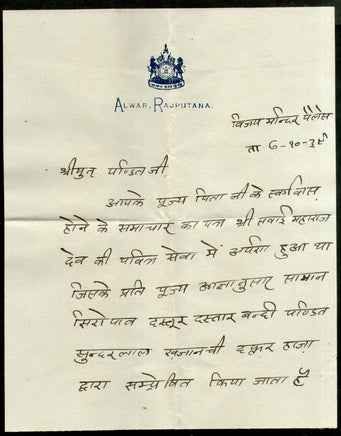 ALWAR, RAJPUTANA.
विजय मन्दिर पैलेस
ता ६-१०-३९
श्रीयुत् पण्डित जी,
आपके पूज्य पिता जी के स्वर्गवास
होने के समाचार का पत्र श्री सवाई महाराज
देव की पवित्र सेवा में अर्पण हुआ था
जिसके प्रति पूज्य आज्ञानुसार सामान
सिरोपाव दस्तूर दस्तार बन्दी पण्डित
सुन्दरलाल खज़ानची दफ़्तर हाज़ा
द्वारा सम्प्रेषित किया जाता है